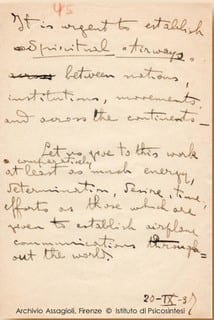 45
It is urgent to establish
"Spiritual Airways"
across between nations,
institutions, movements
and across the continents—
Let us give to this work
comparatively
at least as much energy,
determination, desire, time,
efforts as those which are
given to establish airplane
communications through=
out the world.
20-IX-37
Archivio Assagioli, Firenze © Istituto di Psicosintesi